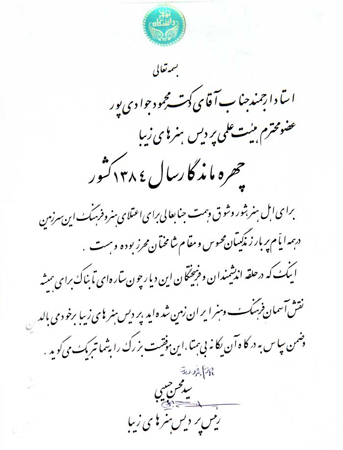 بسمه تعالی
استاد ارجمند جناب آقای دکتر محمود جوادی پور
عضو محترم هیئت علمی پردیس هنرهای زیبا
چهره ماندگار سال ۱۳۸۴ کشور
برای اهل هنر شور و شوق و همت جنابعالی برای اعتلای هنر و فرهنگ این سرزمین
در همه ایام پربار زندگیتان محسوس و مقام شامختان محرز بوده و هست .
اینک که در حلقه اندیشمندان و فرهیختگان این دیار چون ستاره ای تابناک برای همیشه
نقش آسمان فرهنگ و هنر ایران زمین شده اید پردیس هنرهای زیبا بر خود می بالد
و ضمن سپاس به درگاه آن یگانه بی همتا، این موفقیت بزرگ را به شما تبریک می گوید .
سید محسن حبیبی
رئیس پردیس هنرهای زیبا